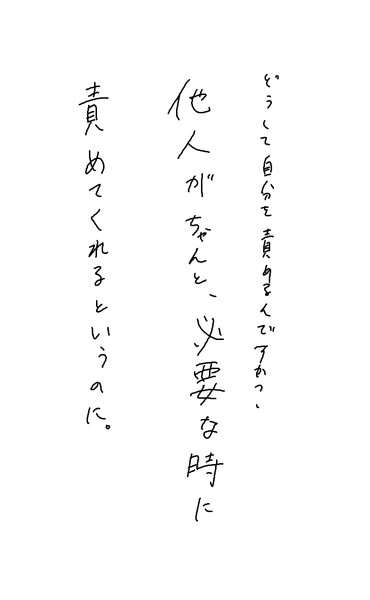 どうして自分を責めるんですかっ、
他人がちゃんと、必要な時に
責めてくれるというのに。